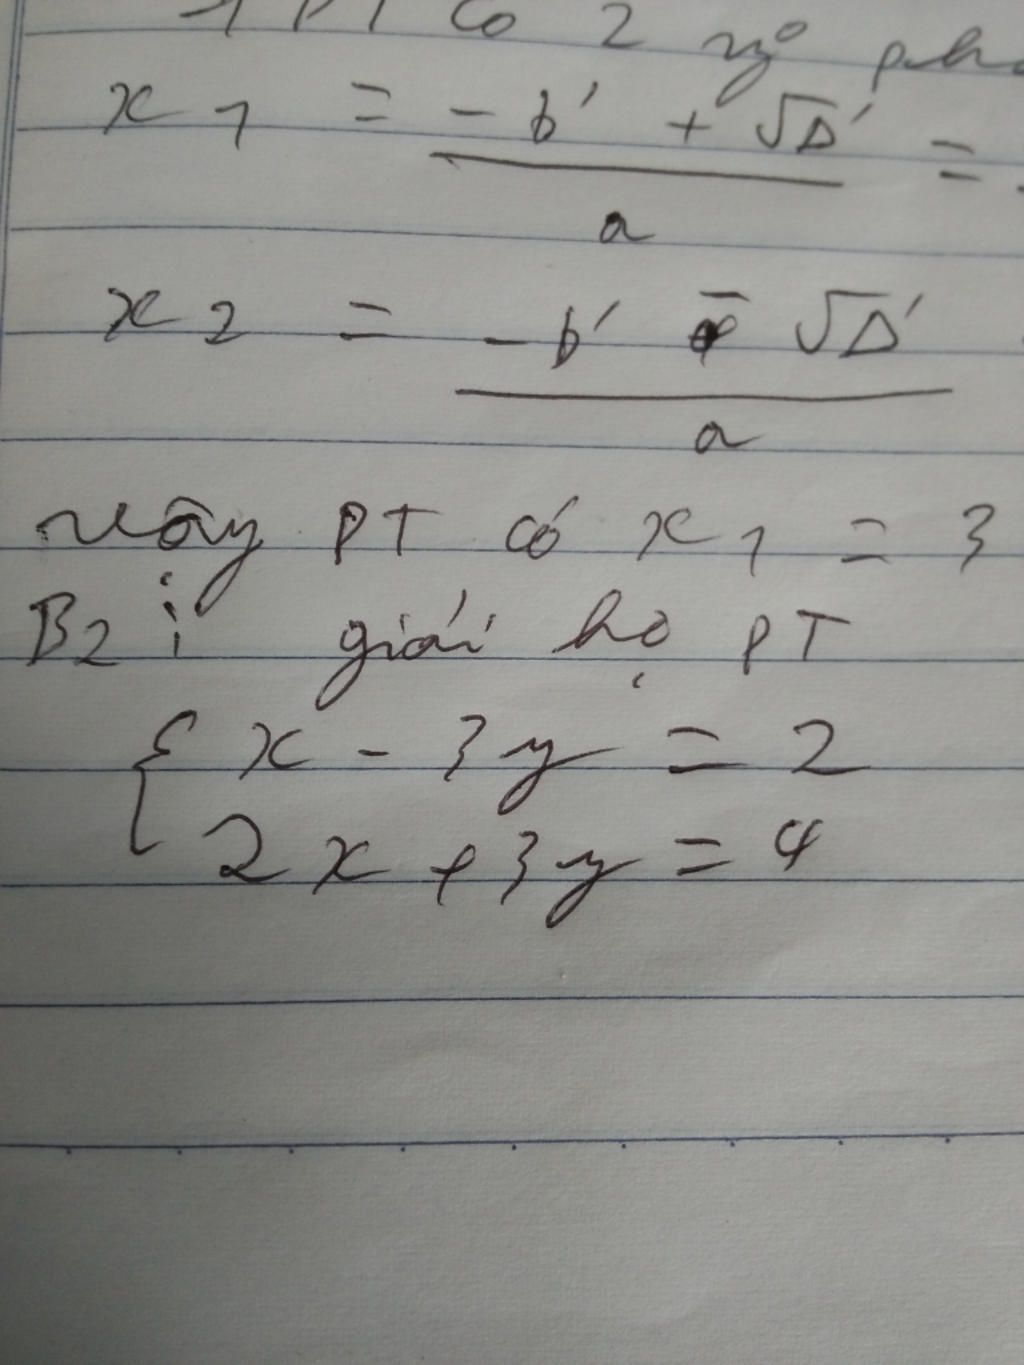 PT có 2 ng°
x1 = -b' + √Δ' / a =
x2 = -b' - √Δ' / a
Vậy PT có x1 = 3
B2: giải hệ PT
{ x - 3y = 2
2x + 3y = 4